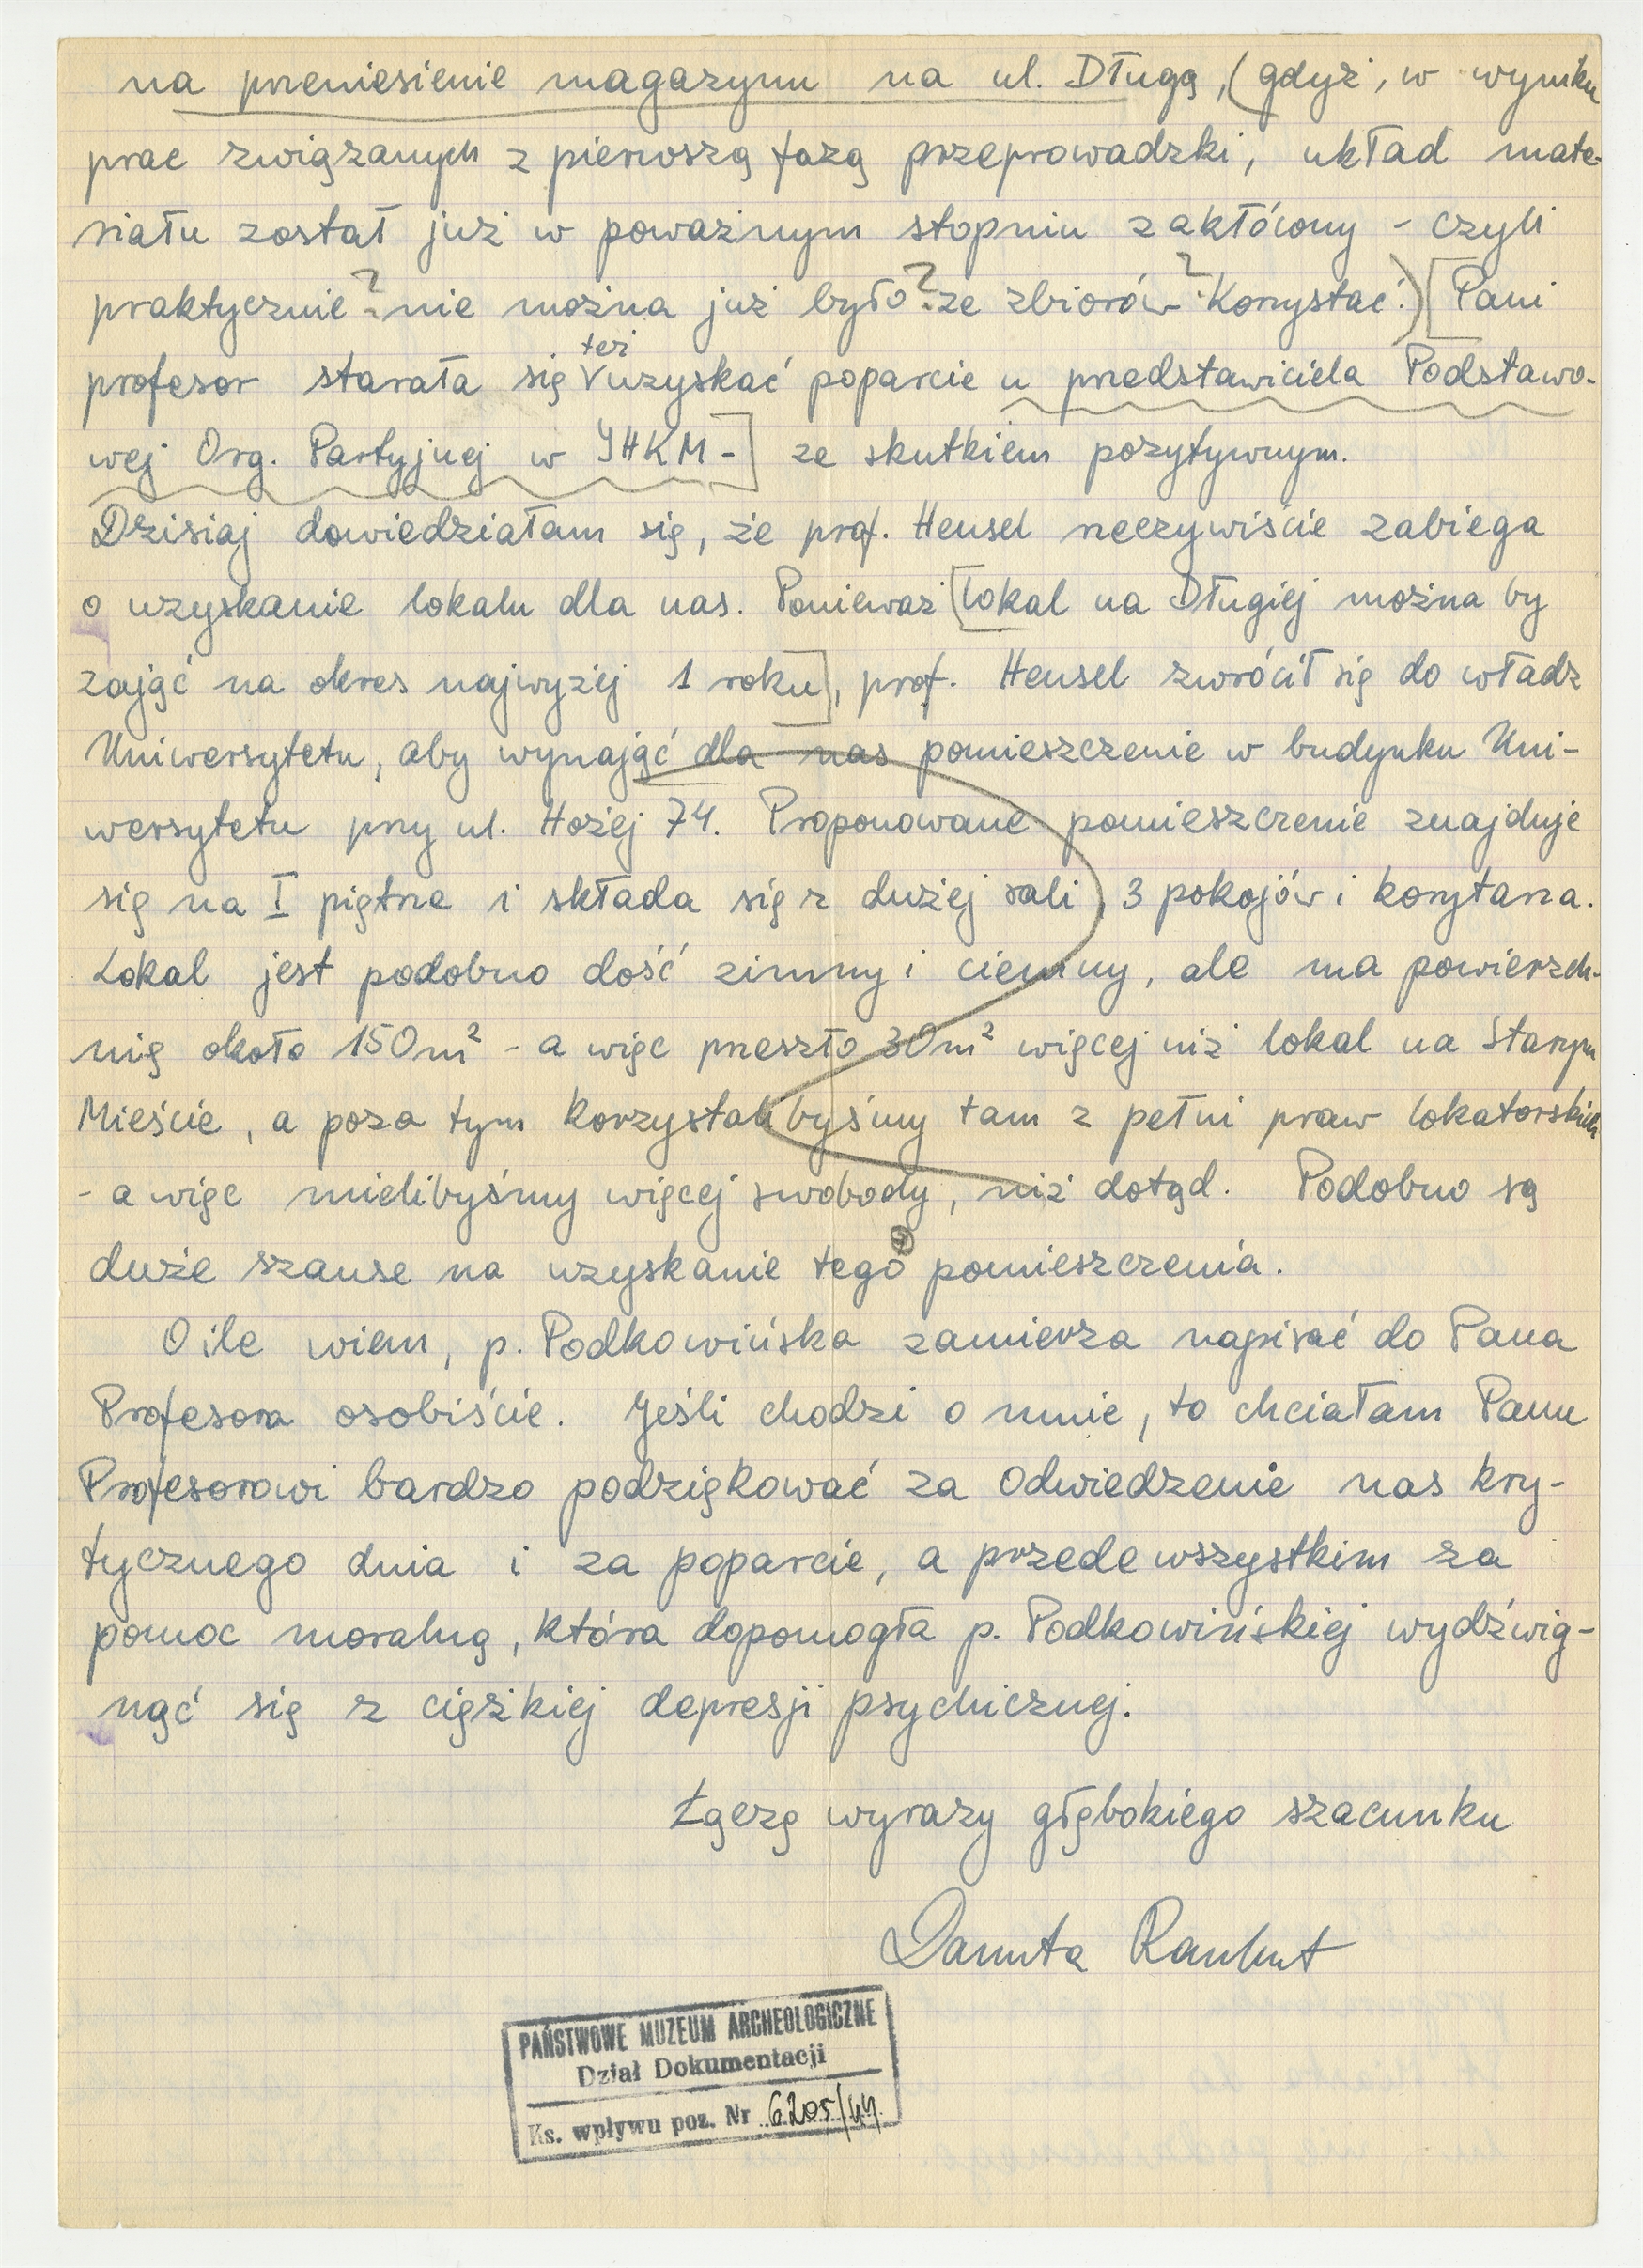 na przeniesienie magazynu na ul. Długą, (gdyż, w wyniku
prac związanych z pierwszą fazą przeprowadzki, układ mate-
riału został już w poważnym stopniu zakłócony - czyli
praktycznie ? nie można już było ? ze zbiorów ? korzystać.) [Pani
profesor starała się też uzyskać poparcie u przedstawiciela Podstawo-
wej Org. Partyjnej w IHKM -] ze skutkiem pozytywnym.
Dzisiaj dowiedziałam się, że prof. Hensel rzeczywiście zabiega
o uzyskanie lokalu dla nas. Ponieważ [lokal na Długiej można by
zająć na okres najwyżej 1 roku], prof. Hensel zwrócił się do władz
Uniwersytetu, aby wynająć dla nas pomieszczenie w budynku Uni-
wersytetu przy ul. Hożej 74. Proponowane pomieszczenie znajduje
się na I piętrze i składa się z dużej sali, 3 pokojów i korytarza.
Lokal jest podobno dość zimny i ciemny, ale ma powierzch-
nię około 150 m² - a więc przeszło 30 m² więcej niż lokal na Starym
Mieście, a poza tym korzystalibyśmy tam z pełni praw lokatorskich
- a więc mielibyśmy więcej swobody, niż dotąd. Podobno są
duże szanse na uzyskanie tego pomieszczenia.
O ile wiem, p. Podkowińska zamierza napisać do Pana
Profesora osobiście. Jeśli chodzi o mnie, to chciałam Panu
Profesorowi bardzo podziękować za odwiedzenie nas kry-
tycznego dnia i za poparcie, a przede wszystkim za
pomoc moralną, która dopomogła p. Podkowińskiej wydźwig-
nąć się z ciężkiej depresji psychicznej.
Łączę wyrazy głębokiego szacunku
Danuta Rauhut
PAŃSTWOWE MUZEUM ARCHEOLOGICZNE
Dział Dokumentacji
Ks. wpływu poz. Nr 6205/44